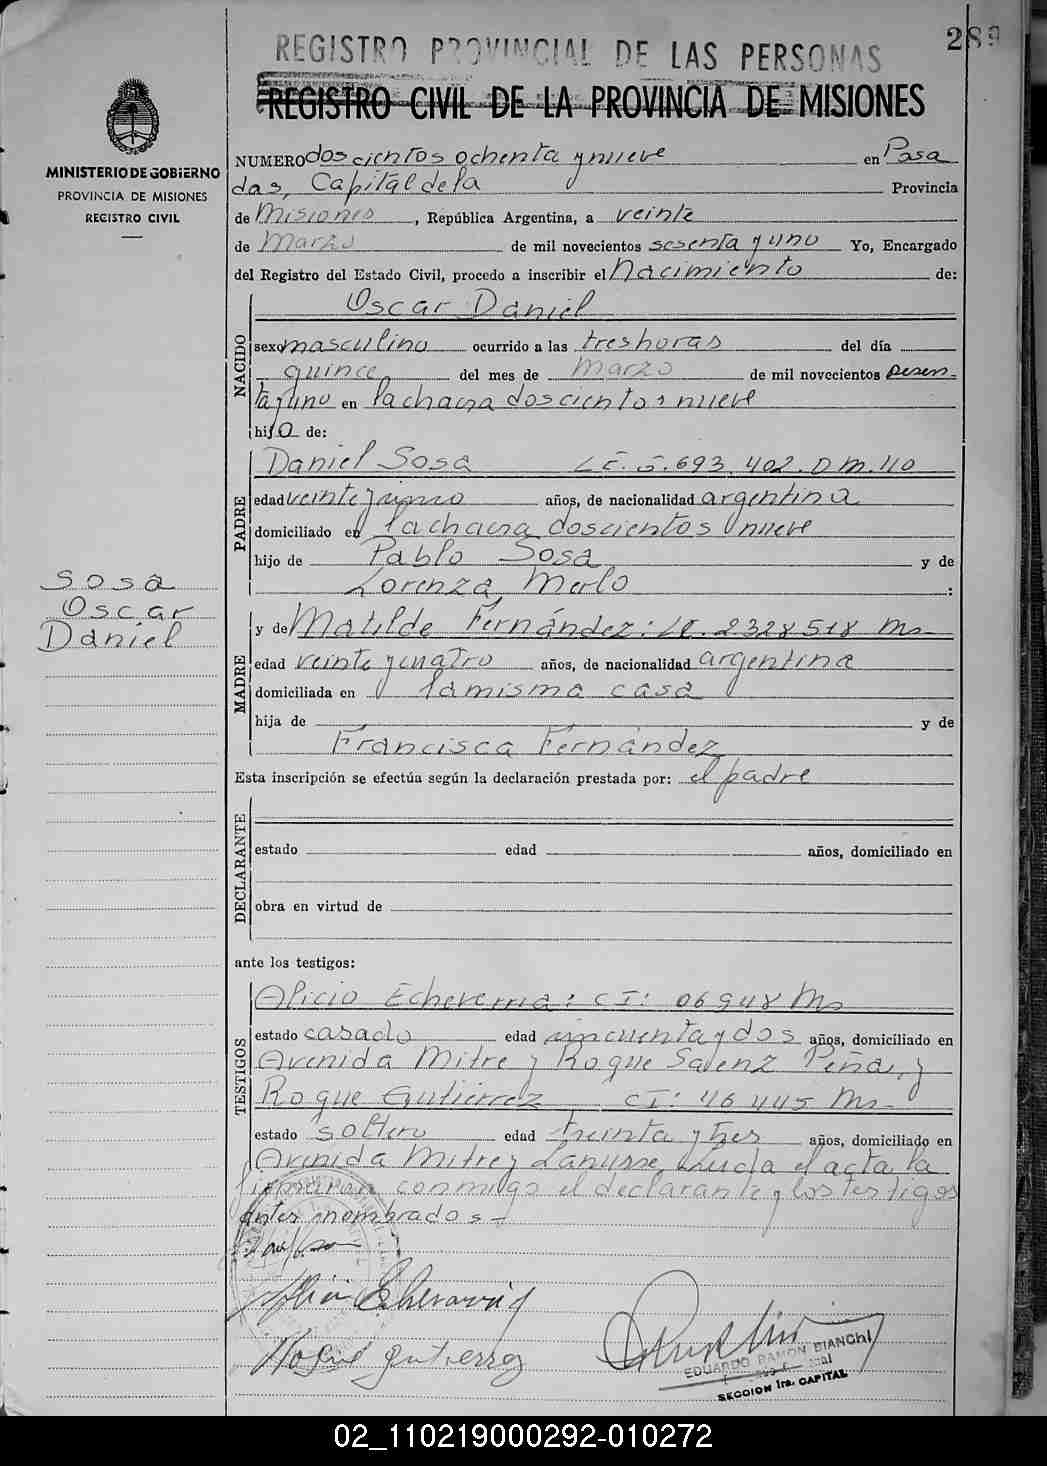 289
REGISTRO PROVINCIAL DE LAS PERSONAS
REGISTRO CIVIL DE LA PROVINCIA DE MISIONES
MINISTERIO DE GOBIERNO
PROVINCIA DE MISIONES
REGISTRO CIVIL
NUMERO doscientos ochenta y nueve en Posa
das, Capital de la Provincia
de Misiones, República Argentina, a veinte
de Marzo de mil novecientos sesenta y uno Yo, Encargado
del Registro del Estado Civil, procedo a inscribir el Nacimiento de:
NACIDO
Oscar Daniel
sexo masculino ocurrido a las tres horas del día
quince del mes de Marzo de mil novecientos sesen-
ta y uno en la chacra doscientos nueve
hijo de:
PADRE
Daniel Sosa LE. 5.693.402. DM. 40
edad veinte y años, de nacionalidad argentina
domiciliado en la chacra doscientos nueve
hijo de Pablo Sosa y de
Lorenza Merlo :
Sosa
Oscar
Daniel
MADRE
y de Matilde Fernández: LC. 2328518 Ms-
edad veinte y cuatro años, de nacionalidad argentina
domiciliada en la misma casa
hija de y de
Francisca Fernández
Esta inscripción se efectúa según la declaración prestada por: el padre
DECLARANTE
estado edad años, domiciliado en
obra en virtud de
ante los testigos:
TESTIGOS
Alicio Echeverria: CI: 06948 Ms
estado casado edad cincuenta y dos años, domiciliado en
Avenida Mitre y Roque Saenz Peña, y
Roque Gutierrez CI: 46445 Ms-
estado soltero edad treinta y tres años, domiciliado en
Avenida Mitre y Lanusse, Leida el acta la
firmaran conmigo el declarante y los testigos
antes nombrados-
Roque Gutierrez
EDUARDO RAMON BIANCHI
SECCION 1ra. CAPITAL
02_110219000292-010272